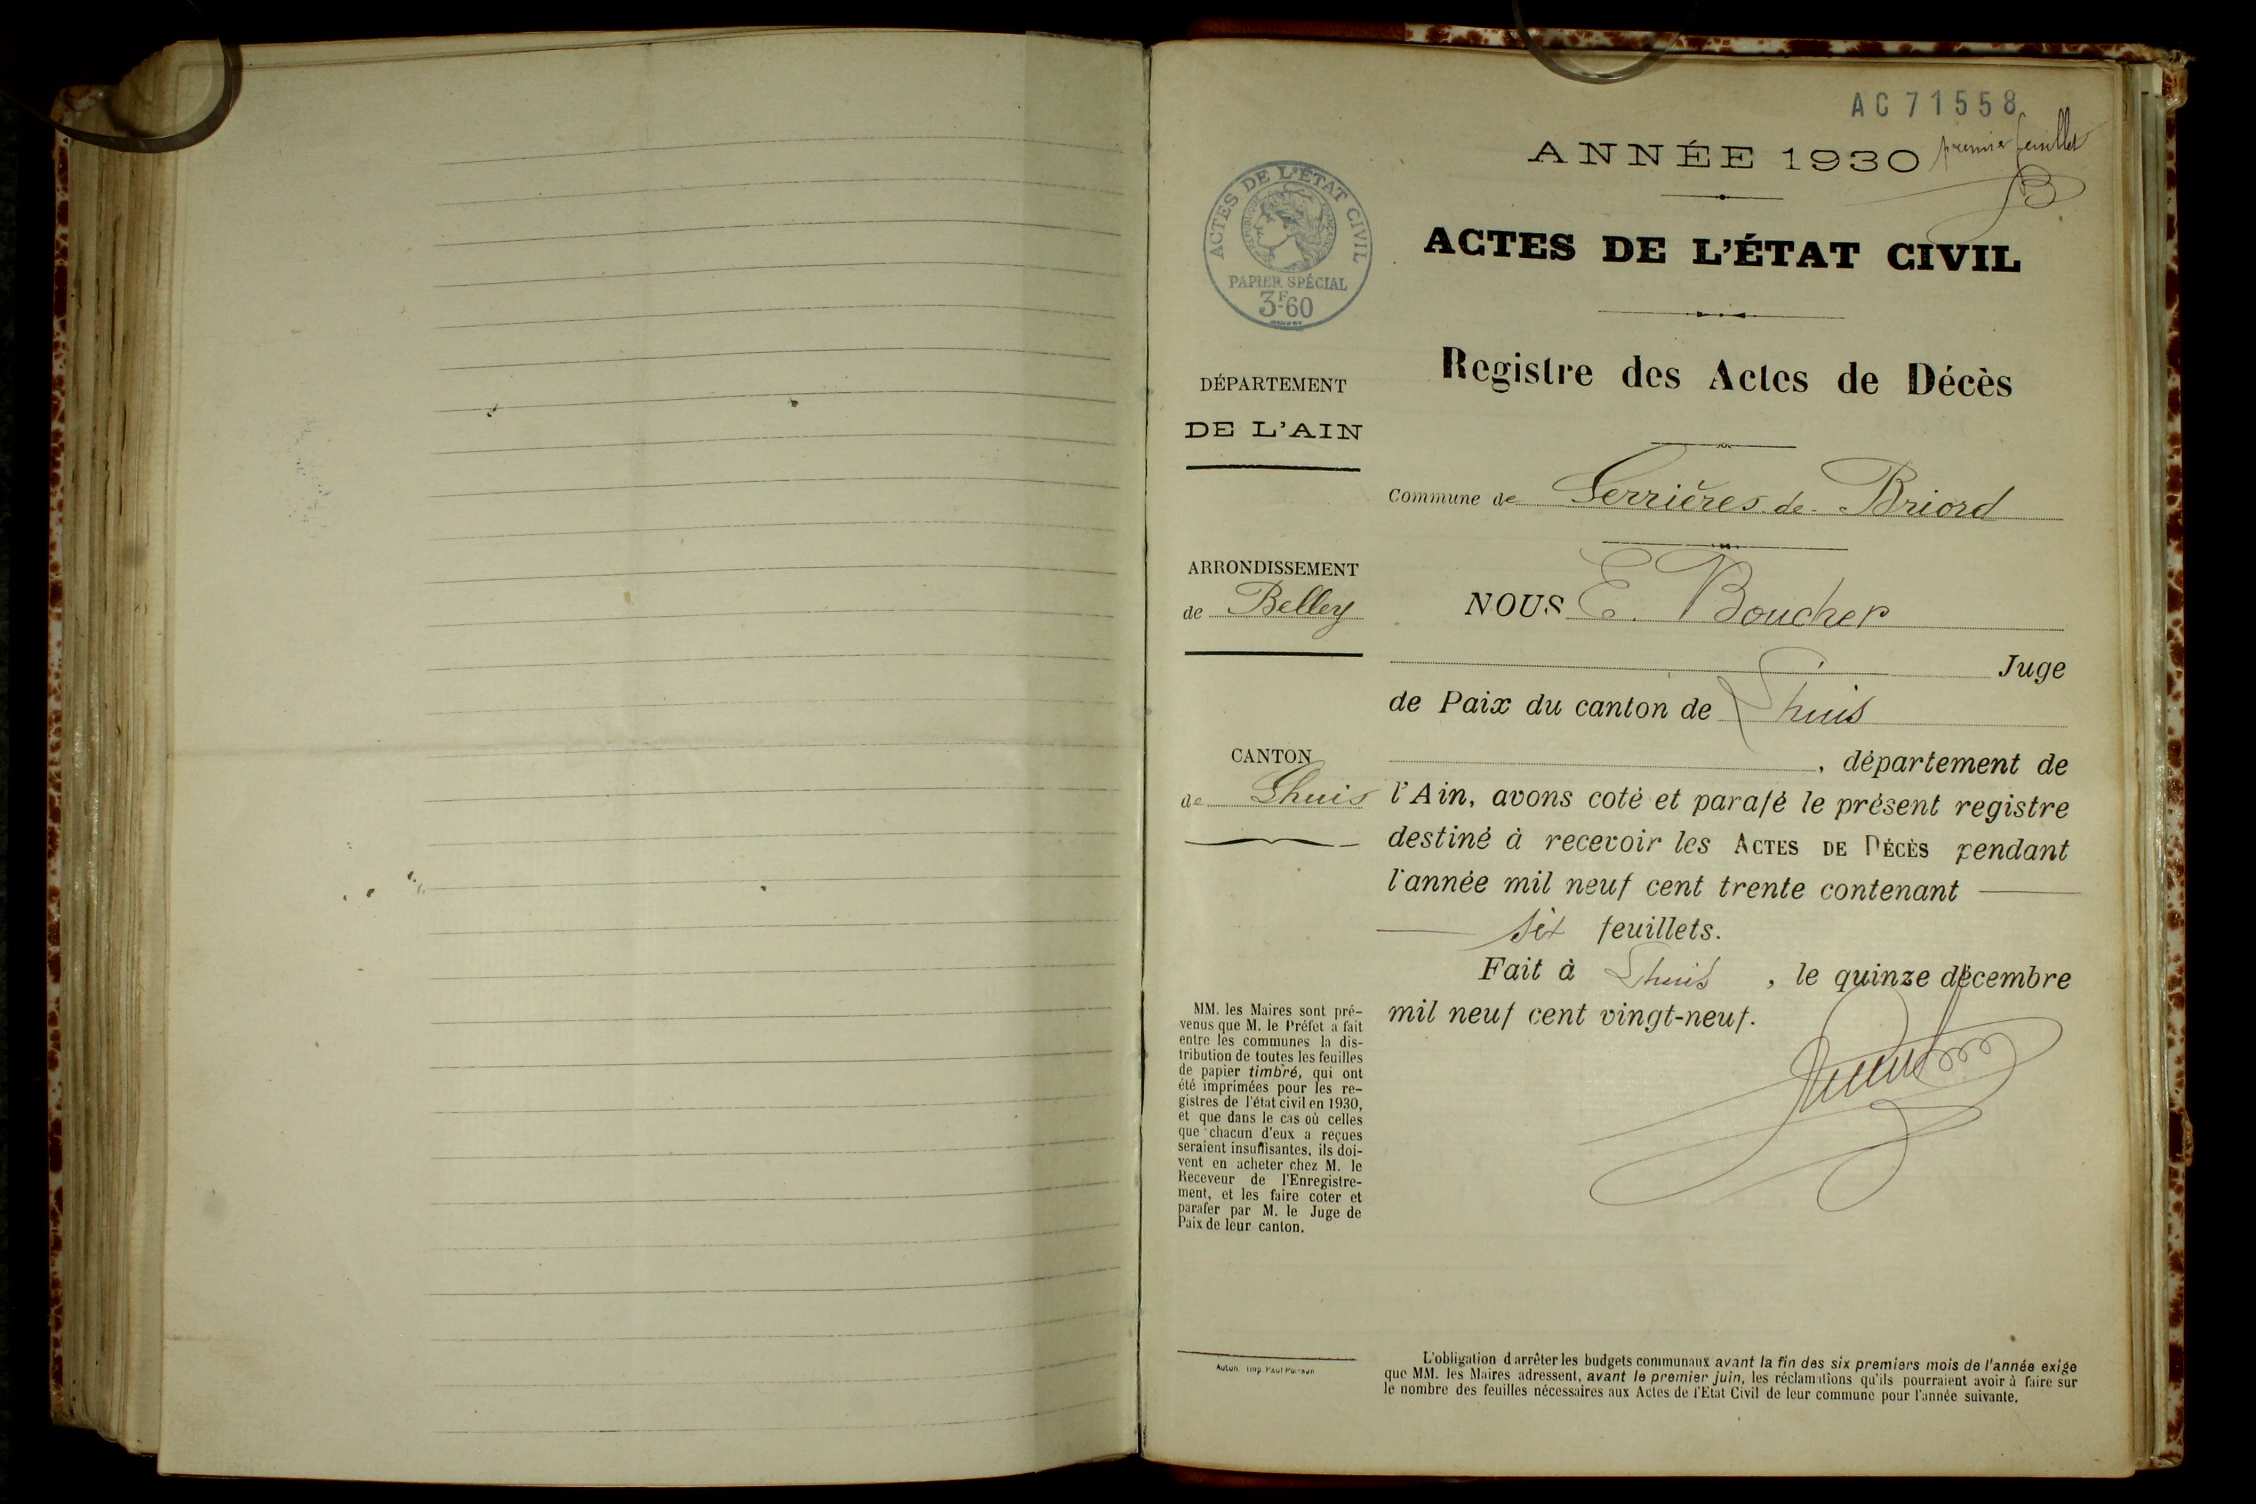 AC 71558
premier feuillet
B
ANNÉE 1930
ACTES DE L'ÉTAT CIVIL
PAPIER SPÉCIAL
3F60
ACTES DE L'ÉTAT CIVIL
Registre des Actes de Décès
DÉPARTEMENT
DE L'AIN
Commune de Serrières-de-Briord
ARRONDISSEMENT
de Belley
NOUS E. Boucher
Juge
de Paix du canton de Lhuis
CANTON
de Lhuis
, département de
l'Ain, avons coté et parafé le présent registre
destiné à recevoir les ACTES DE DÉCÈS pendant
l'année mil neuf cent trente contenant
six feuillets.
Fait à Lhuis , le quinze décembre
mil neuf cent vingt-neuf.
MM. les Maires sont pré-
venus que M. le Préfet a fait
entre les communes la dis-
tribution de toutes les feuilles
de papier timbré, qui ont
été imprimées pour les re-
gistres de l'état civil en 1930,
et que dans le cas où celles
que chacun d'eux a reçues
seraient insuffisantes, ils doi-
vent en acheter chez M. le
Receveur de l'Enregistre-
ment, et les faire coter et
parafer par M. le Juge de
Paix de leur canton.
Autun. Imp. Paul
L'obligation d'arrêter les budgets communaux avant la fin des six premiers mois de l'année exige
que MM. les Maires adressent, avant le premier juin, les réclamations qu'ils pourraient avoir à faire sur
le nombre des feuilles nécessaires aux Actes de l'Etat Civil de leur commune pour l'année suivante.